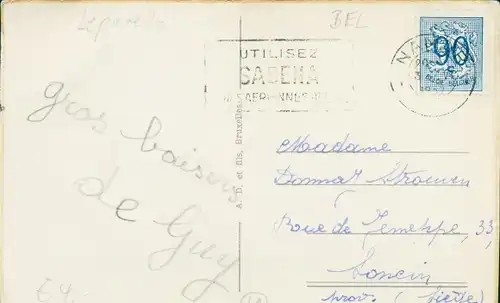 BEL
UTILISEZ
SABENA
90
gros baisers
de Guy
A. D. et fils, Bruxelles
Madame
Donnat Strouven
Rue de Jemeppe, 33,
Loncin
prov. (Liège)
64